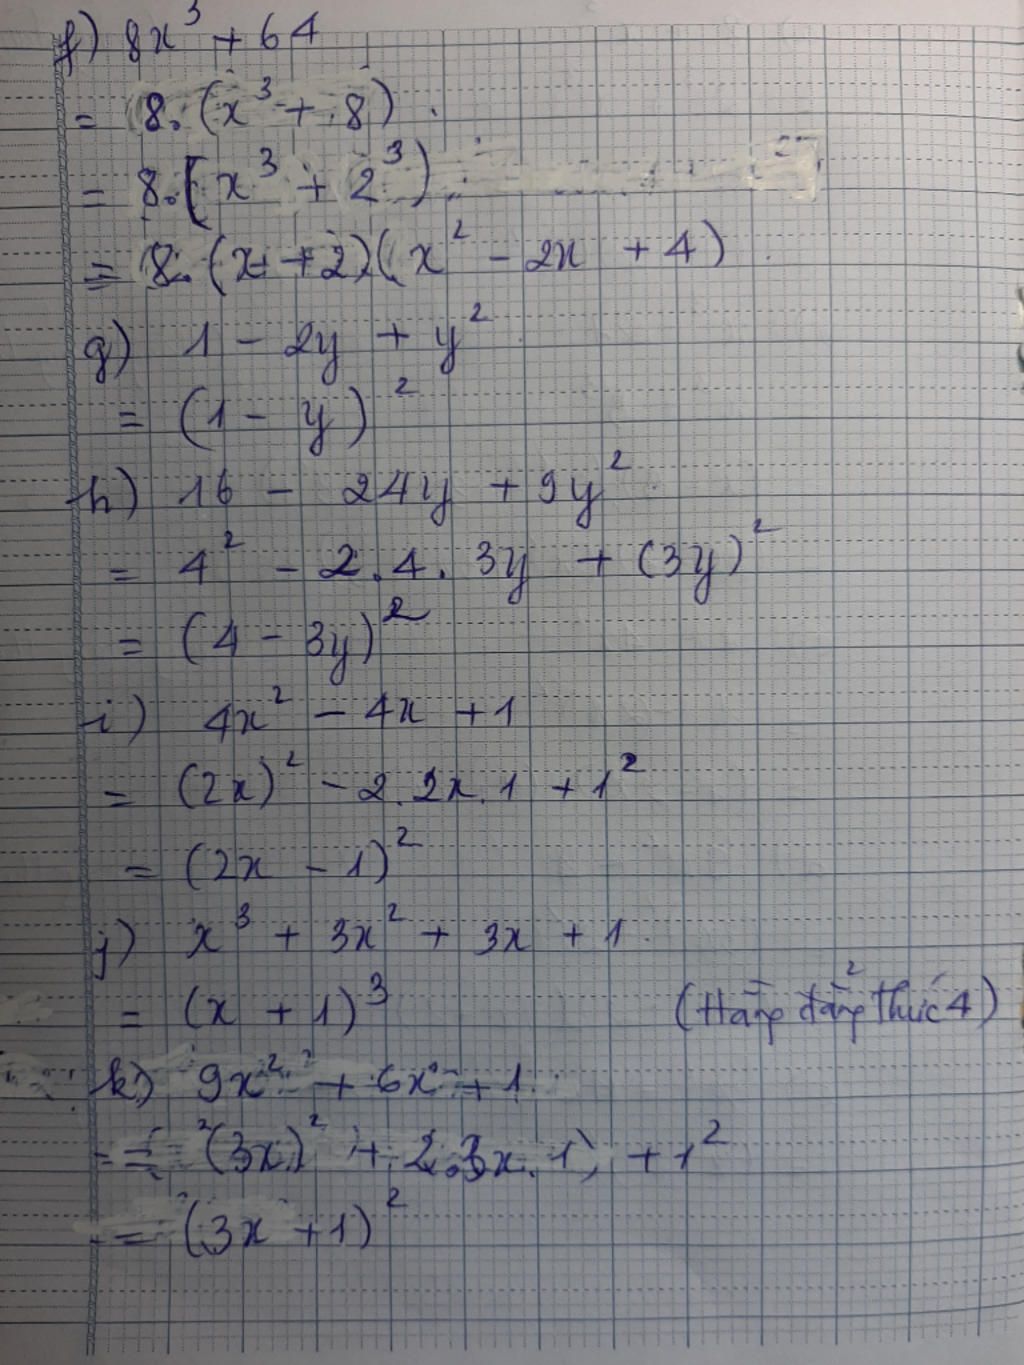 f) 8x³ + 64
= 8.(x³ + 8)
= 8.(x³ + 2³)
= 8.(x + 2)(x² - 2x + 4)
g) 1 - 2y + y²
= (1 - y)²
h) 16 - 24y + 9y²
= 4² - 2.4.3y + (3y)²
= (4 - 3y)²
i) 4x² - 4x + 1
= (2x)² - 2.2x.1 + 1²
= (2x - 1)²
j) x³ + 3x² + 3x + 1
= (x + 1)³ (Hằng đẳng thức 4)
k) 9x² + 6x + 1
= (3x)² + 2.3x.1 + 1²
= (3x + 1)²